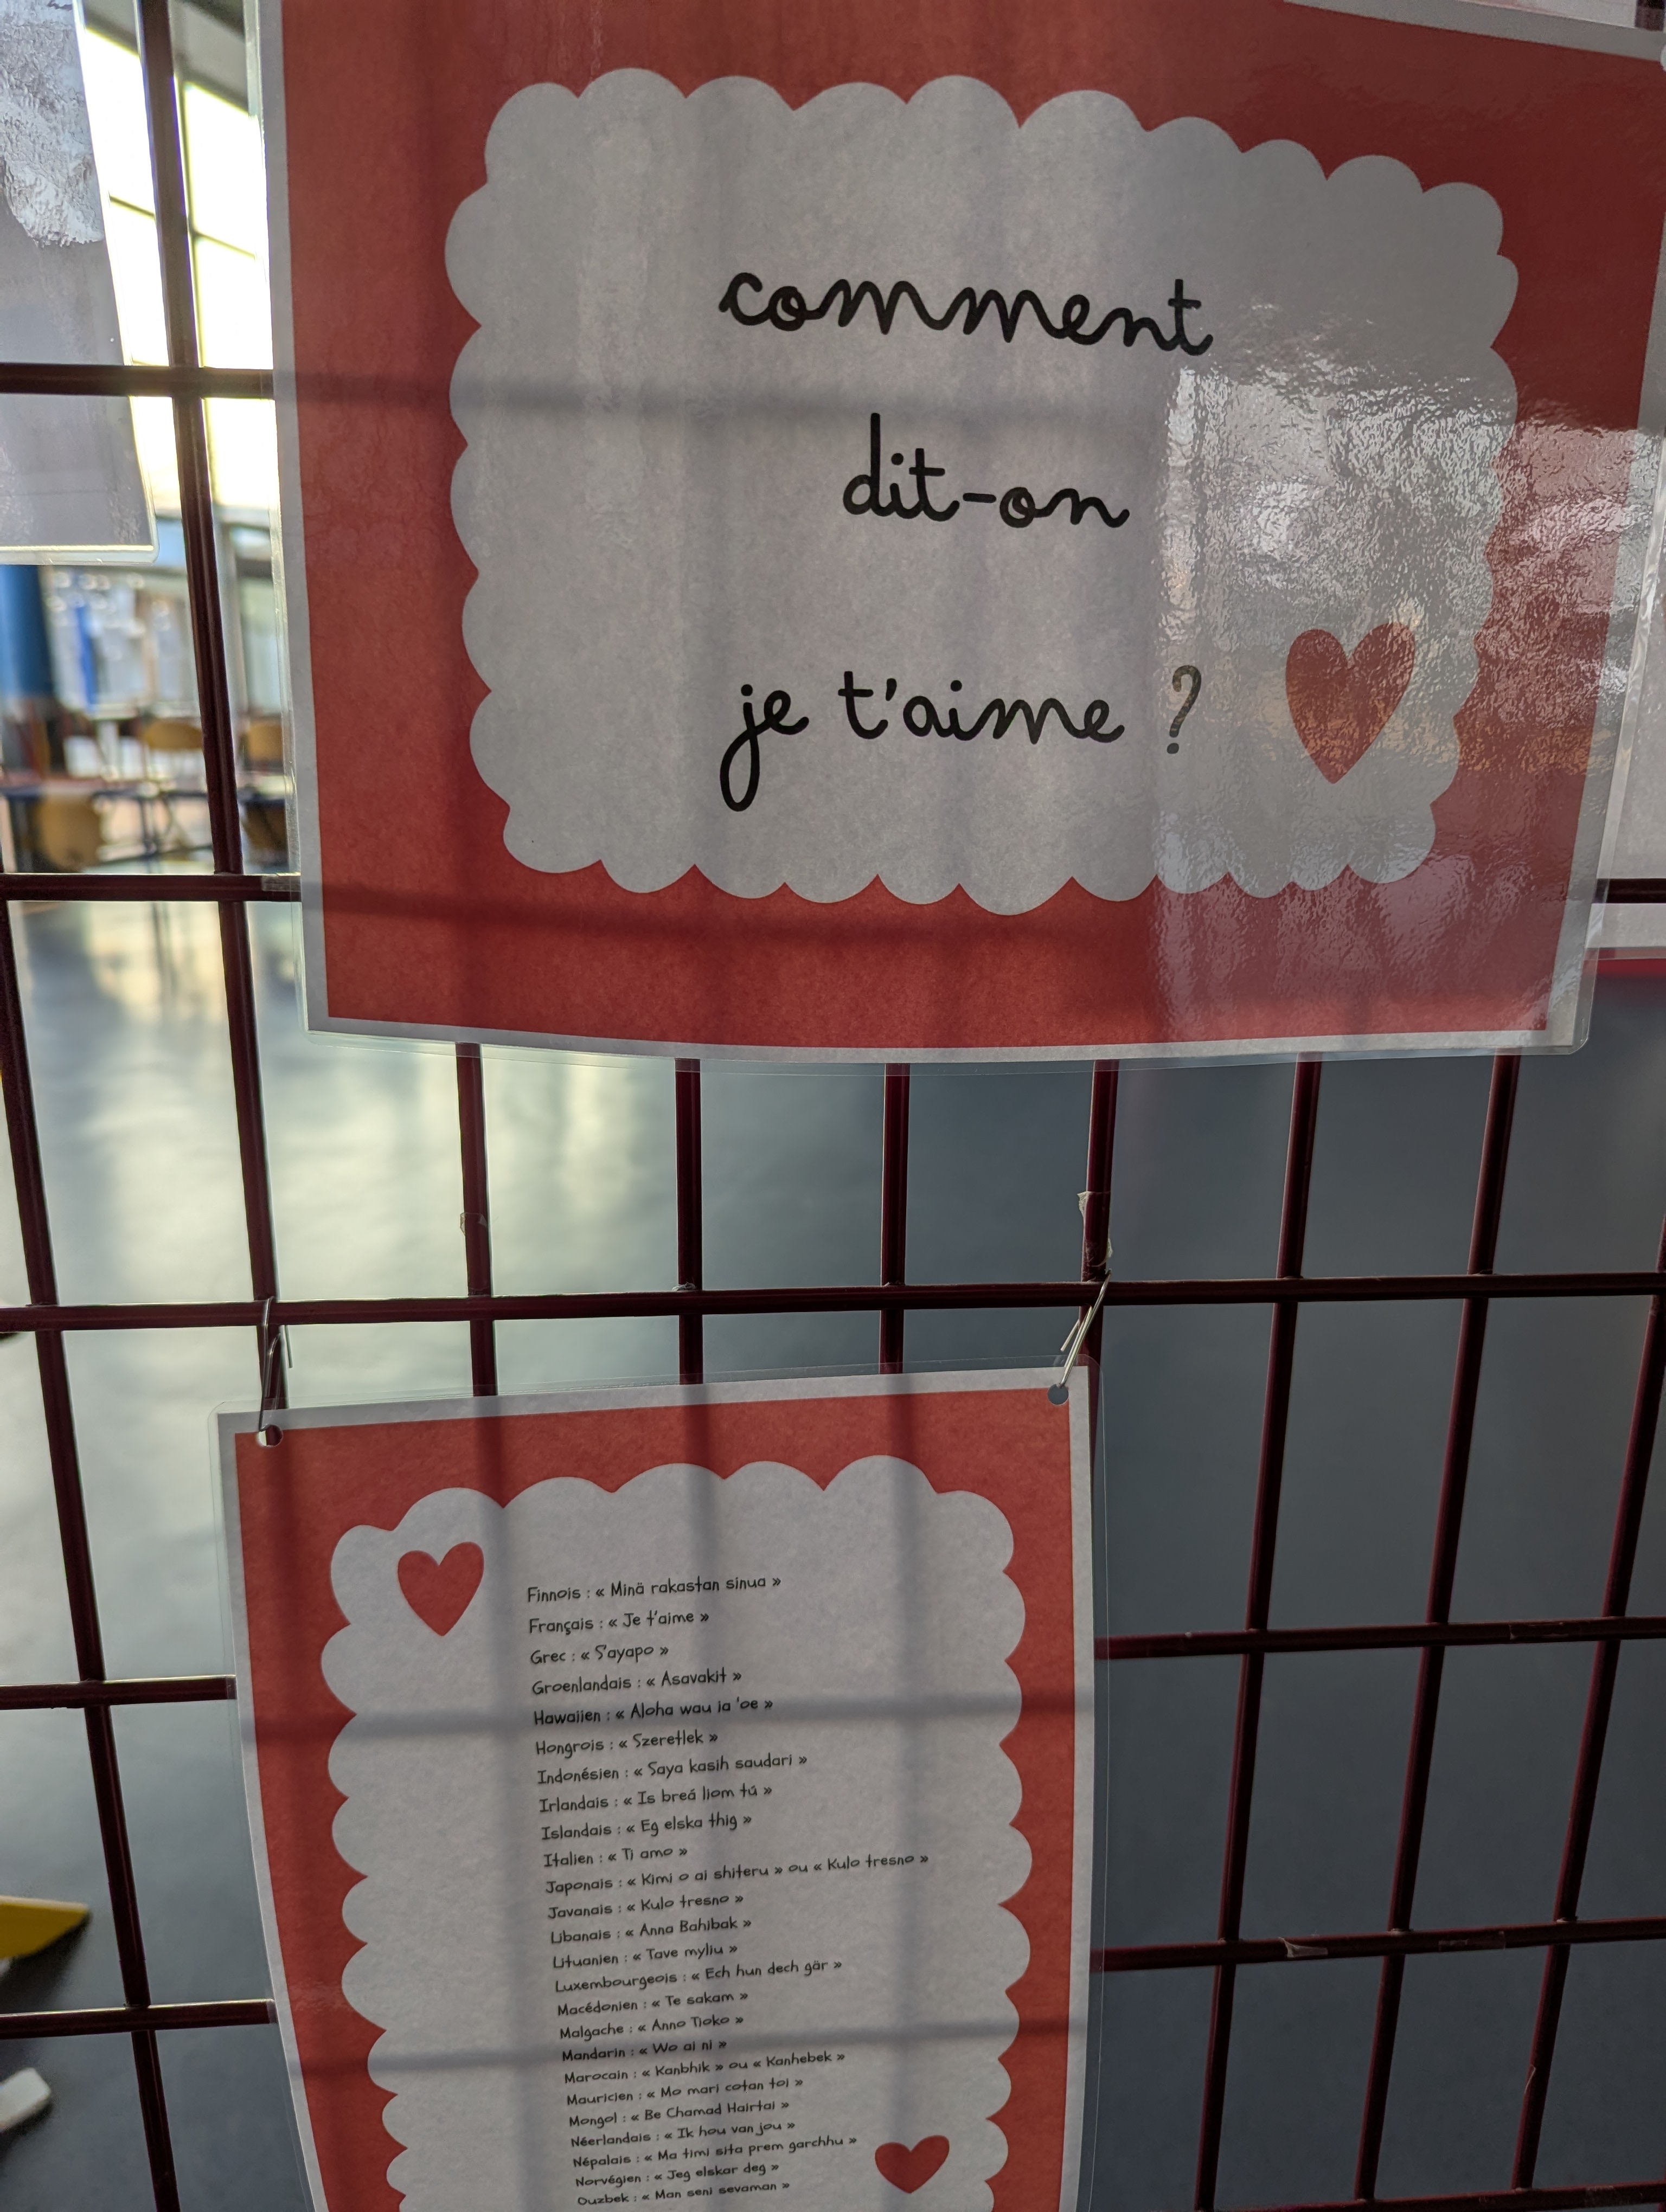 comment
dit-on
je t'aime ?
Finnois : « Minä rakastan sinua »
Français : « Je t'aime »
Grec : « S'ayapo »
Groenlandais : « Asavakit »
Hawaiien : « Aloha wau ia 'oe »
Hongrois : « Szeretlek »
Indonésien : « Saya kasih saudari »
Irlandais : « Is breá liom tú »
Islandais : « Eg elska thig »
Italien : « Ti amo »
Japonais : « Kimi o ai shiteru » ou « Kulo tresno »
Javanais : « Kulo tresno »
Libanais : « Anna Bahibak »
Lituanien : « Tave myliu »
Luxembourgeois : « Ech hun dech gär »
Macédonien : « Te sakam »
Malgache : « Anno Tioko »
Mandarin : « Wo ai ni »
Marocain : « Kanbhik » ou « Kanhebek »
Mauricien : « Mo mari cotan toi »
Mongol : « Be Chamad Hairtai »
Néerlandais : « Ik hou van jou »
Népalais : « Ma timi sita prem garchhu »
Norvégien : « Jeg elskar deg »
Ouzbek : « Man seni sevaman »